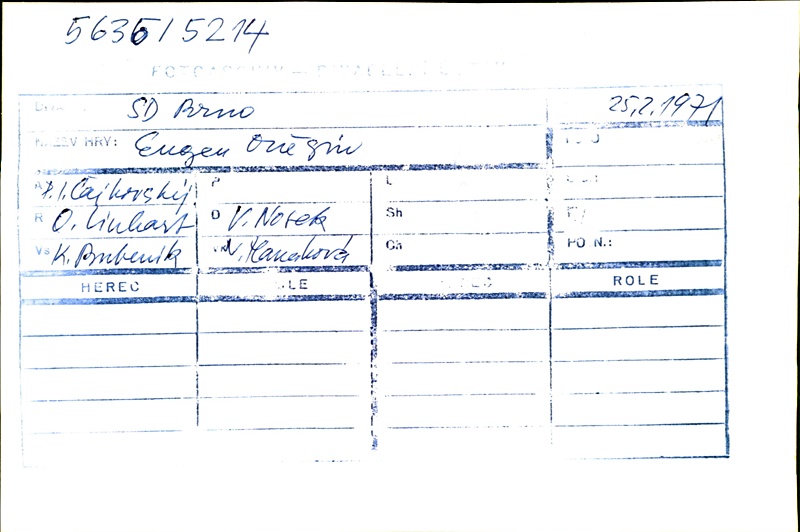 5636/5214
SD Brno 25.2.1971
NÁZEV HRY: Eugen Oněgin
A P. I. Čajkovskij P L
R O. Linhart D V. Nosek Sh
Vs K. Brubeník V. Hanáková Ch PO N.:
HEREC ROLE